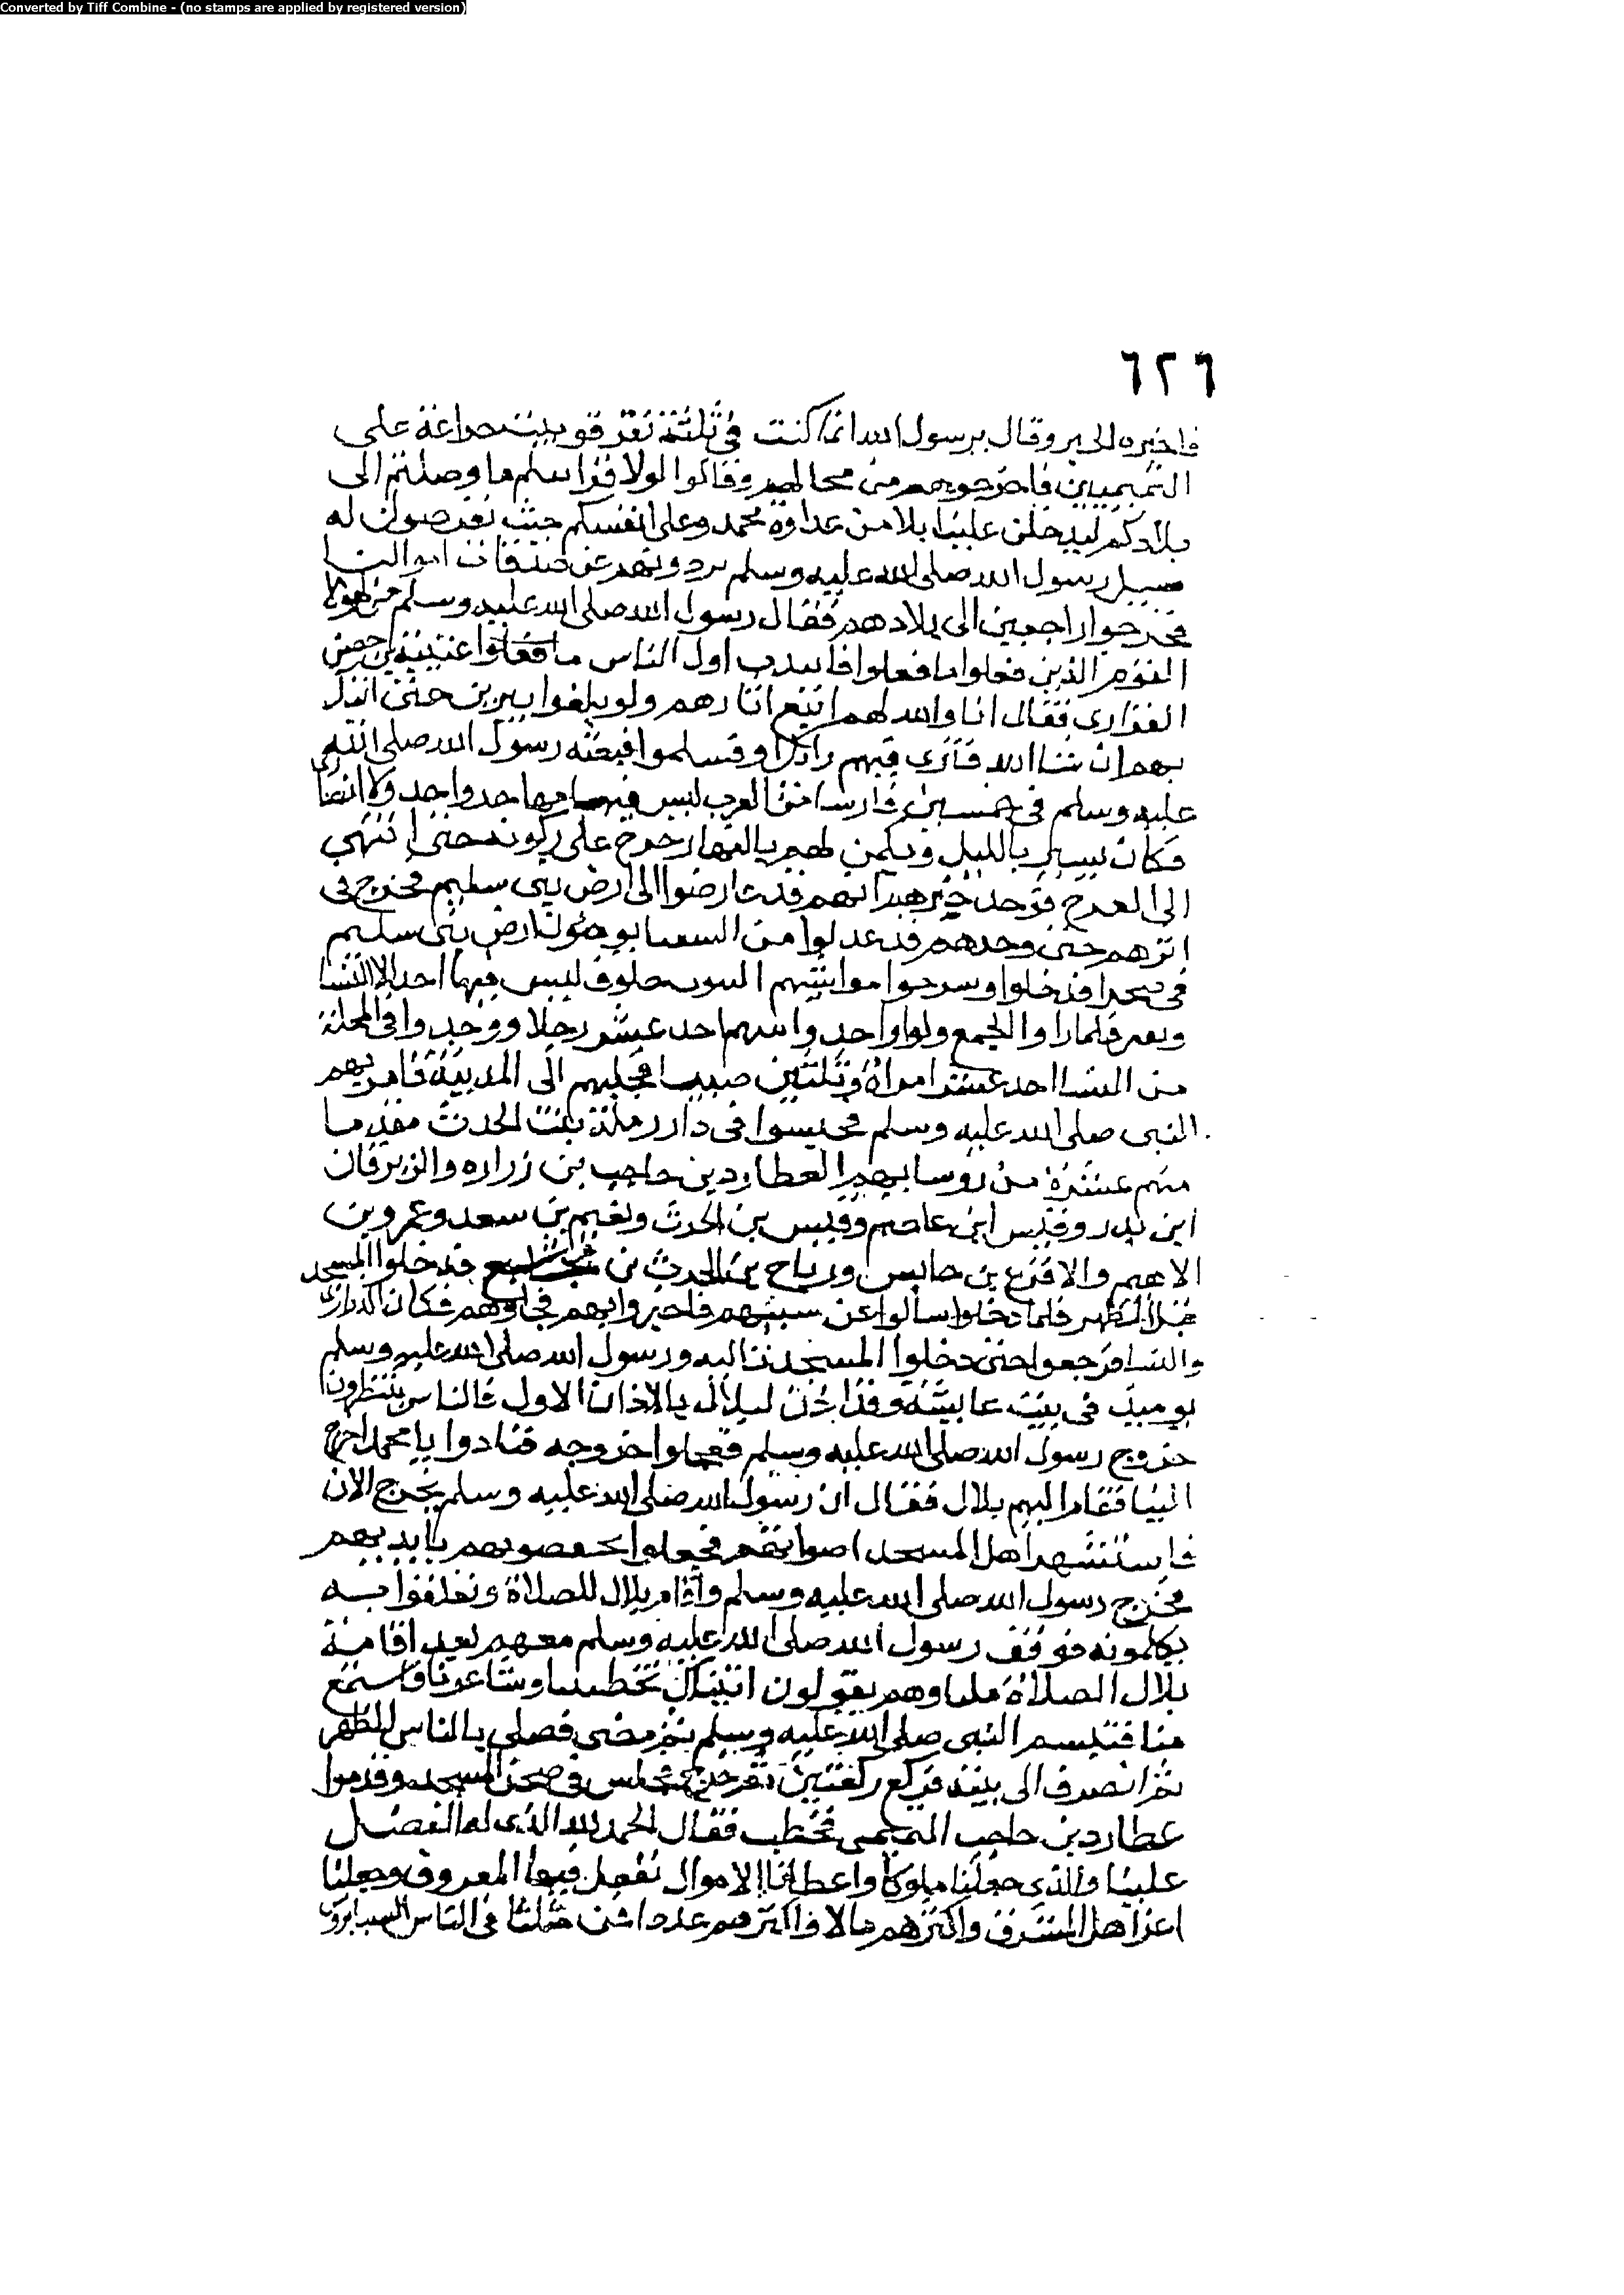 Converted by Tiff Combine - (no stamps are applied by registered version)
٦٢٦
فاخبره الخبر وقال يرسول الله انما كنت في ثلثة نفر فوثبت خزاعة على
التميميين فاخرجوهم من محالهم وقالوا لولا قرابتكم ما وصلتم الى
بلادكم ليدخلن علينا بلا من عداوة محمد وعلى انفسكم حيث تعرضون له
سبيل رسول الله صلى الله عليه وسلم تردونهم عن صدقات اموالنا
فخرجوا راجعين الى بلادهم فقال رسول الله صلى الله عليه وسلم من لهولا
القوم الذين فعلوا ما فعلوا فانتدب اول الناس عيينة بن حصن
الفزارى فقال انا والله لهم اتبع اثارهم ولو بلغوا يبرين حتى اتيك
بهم ان شا الله فترى فيهم رايك او يسلموا فبعثه رسول الله صلى الله
عليه وسلم فى خمسين فارسا من العرب ليس فيها مهاجر واحد ولا انصارى
فكان يسير بالليل ويكمن لهم بالنهار خرج على ركوبه حتى انتهى
الى العرج فوجد خبرهم انهم قد عارضوا الى ارض بنى سليم فخرج فى
اثرهم حتى وجدهم قد عدلوا من السقيا يومون ارض بنى سليم
فى صحرا قد حلوا وسرحوا مواشيهم والبيوت خلوف ليس فيها احد الا النسا
ونفر فلما راوا الجمع ولوا واخذوا منهم احد عشر رجلا ووجدوا فى المحلة
من النسا احد عشر امراة وثلثين صبيا فجلبهم الى المدينة فامر بهم
النبى صلى الله عليه وسلم فحبسوا فى دار رملة بنت الحدث فقدم
منهم عشرة من روسايهم العطارد بن حاجب بن زراره والزبرقان
ابن بدر وقيس ابن عاصم وقيس بن الحرث ونعيم بن سعد وعمرو بن
الاهتم والاقرع بن حابس ورياح بن الحرث بن مجاشع فدخلوا المسجد
قبل الظهر فلما دخلوا سالوا عن سبيهم فاخبروا بهم فجاوهم فبكا الذرارى
والنسا فرجعوا حتى دخلوا المسجد ثانيه ورسول الله صلى الله عليه وسلم
يوميذ فى بيت عايشة وقد اذن بلال بالاذان الاول فالناس ينتظرون
خروج رسول الله صلى الله عليه وسلم فعجلوا خروجه فنادوا يا محمد اخرج
الينا فقام اليهم بلال فقال ان رسول الله صلى الله عليه وسلم يخرج الان
فاستشهر اهل المسجد اصواتهم فجعلوا يخفضونهم بايديهم
فخرج رسول الله صلى الله عليه وسلم واقام بلال للصلاة وتعلقوا به
يكلمونه فوقف رسول الله صلى الله عليه وسلم معهم بعد اقامة
بلال الصلاة مليا وهم يقولون اتيناك بخطيبنا وشاعرنا فاستمع
منا فتبسم النبى صلى الله عليه وسلم ثم مضى فصلى بالناس الظهر
ثم انصرف الى بيته فركع ركعتين ثم خرج فجلس فى صحن المسجد وقدموا
عطارد بن حاجب التميمى فخطب فقال الحمد لله الذى له الفضل
علينا والذى جعلنا ملوكا واعطانا الاموال نفعل فيها المعروف وجعلنا
اعز اهل المشرق واكثرهم مالا واكثرهم عددا فمن مثلنا فى الناس السنا بروس